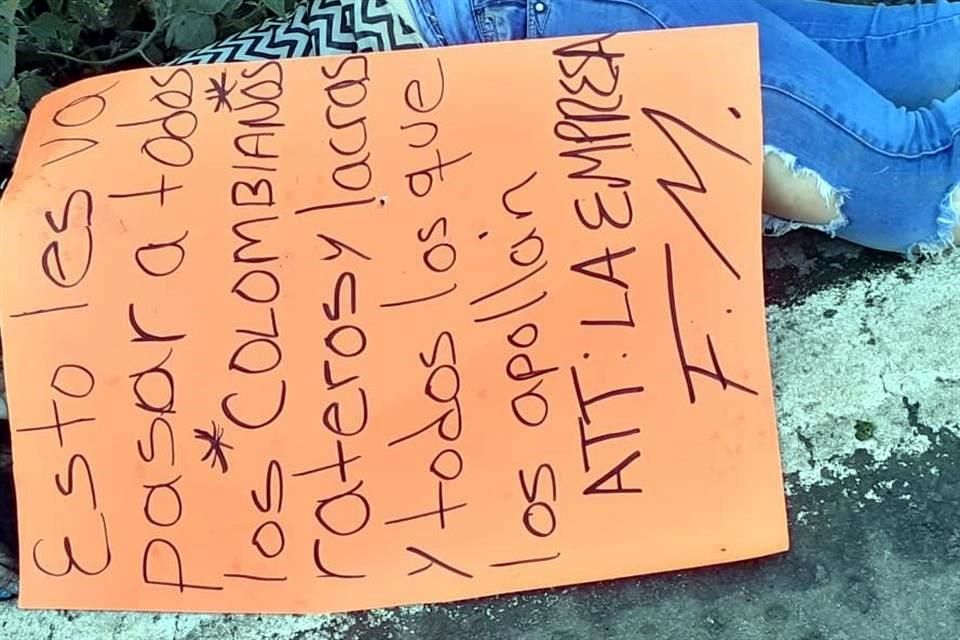 Esto les va
Pasar a todos
los *COLOMBIANOS*
rateros y lacras
y todos los que
los apollan
ATT: LA EMPREZA
F.M.